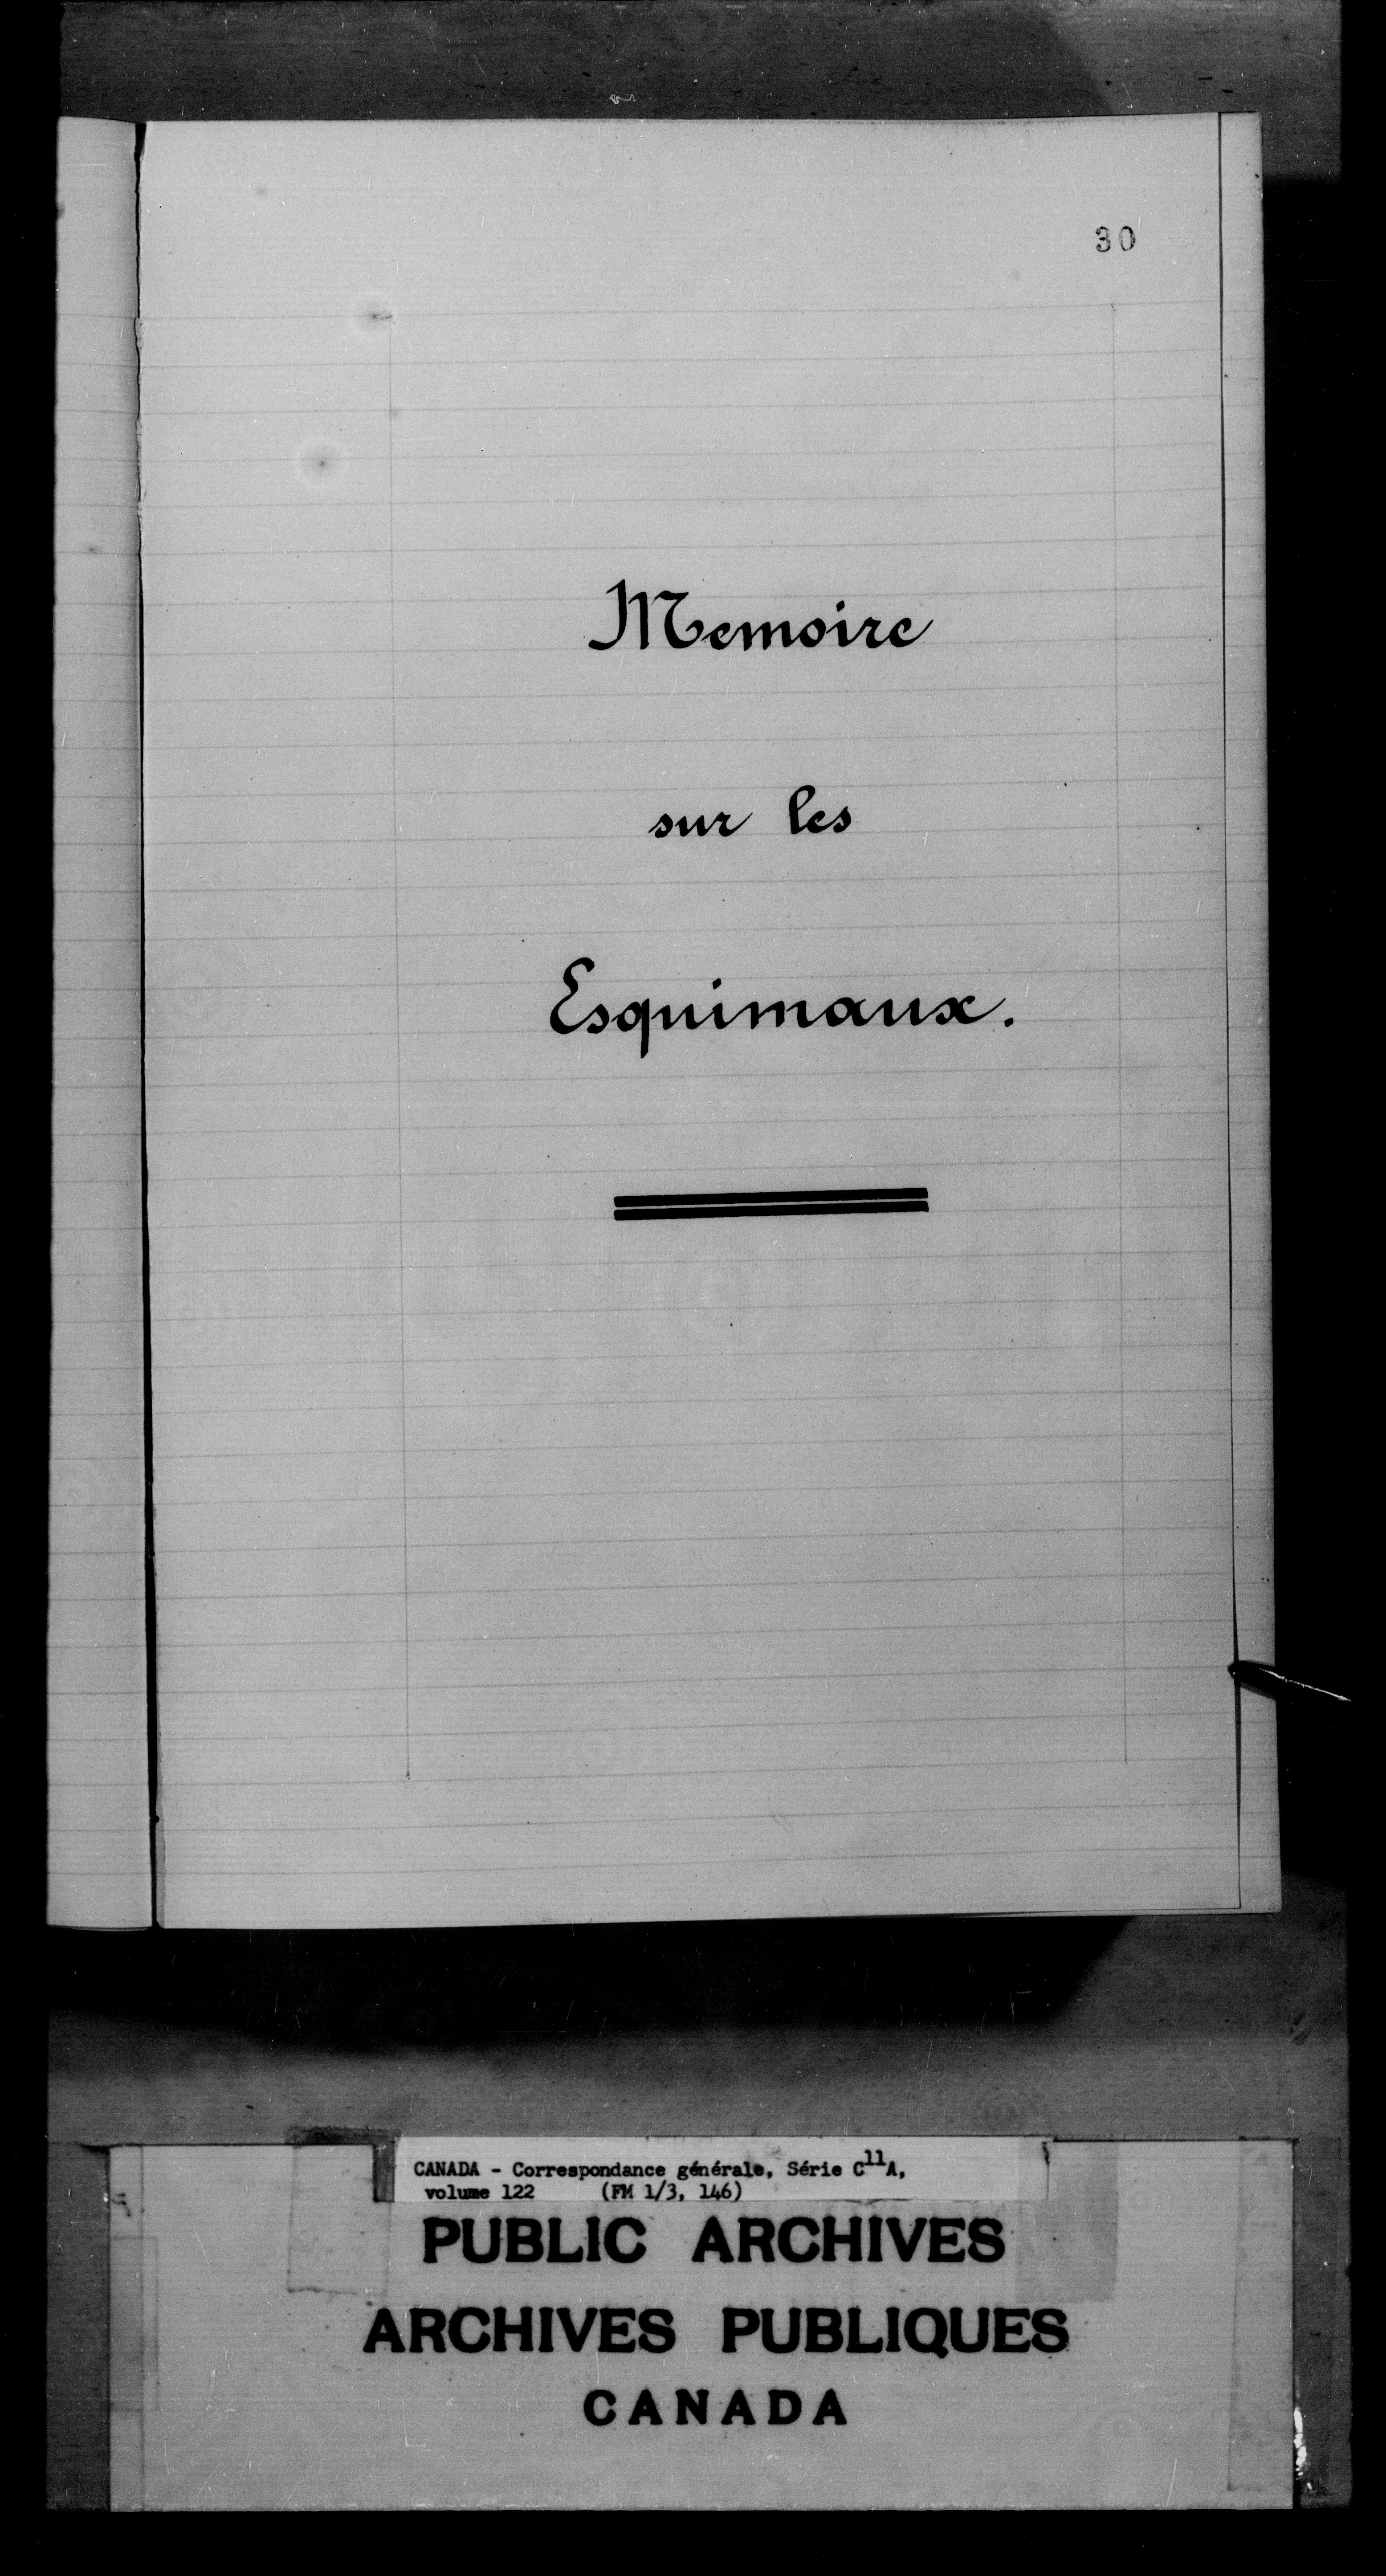 30
Memoire
sur les
Esquimaux.
CANADA - Correspondance générale, Série C11A,
volume 122 (FM 1/3, 146)
PUBLIC ARCHIVES
ARCHIVES PUBLIQUES
CANADA